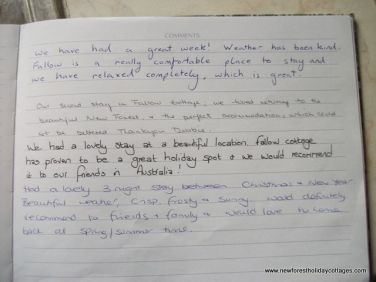 COMMENTS
We have had a great week! Weather has been kind.
Fallow is a really comfortable place to stay and
we have relaxed completely, which is great.
Our second stay in Fallow Cottage, we loved returning to the
beautiful New Forest, & the perfect accommodation, which could
not be bettered Thankyou
We had a lovely stay at a beautiful location. Fallow cottage
has proven to be a great holiday spot & we would recommend
it to our friends in Australia.
Had a lovely 3 night stay between Christmas & New Year.
Beautiful weather, crisp, frosty & sunny. Would definitely
recommend to friends & family & would love to come
back at Spring/summer time.
www.newforestholidaycottages.com